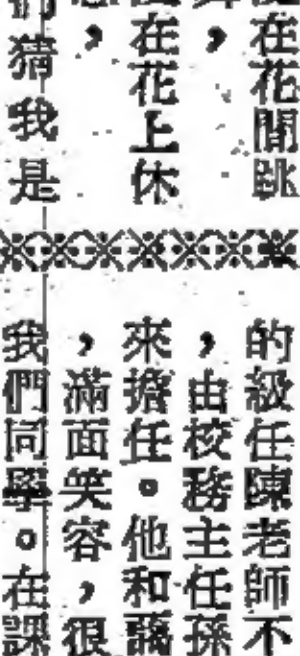 在花間跳
，
在花上休
，
猜我是
的級任陳老師不
，由校務主任孫
來擔任。他和藹
，滿面笑容，很
我們同學。在課